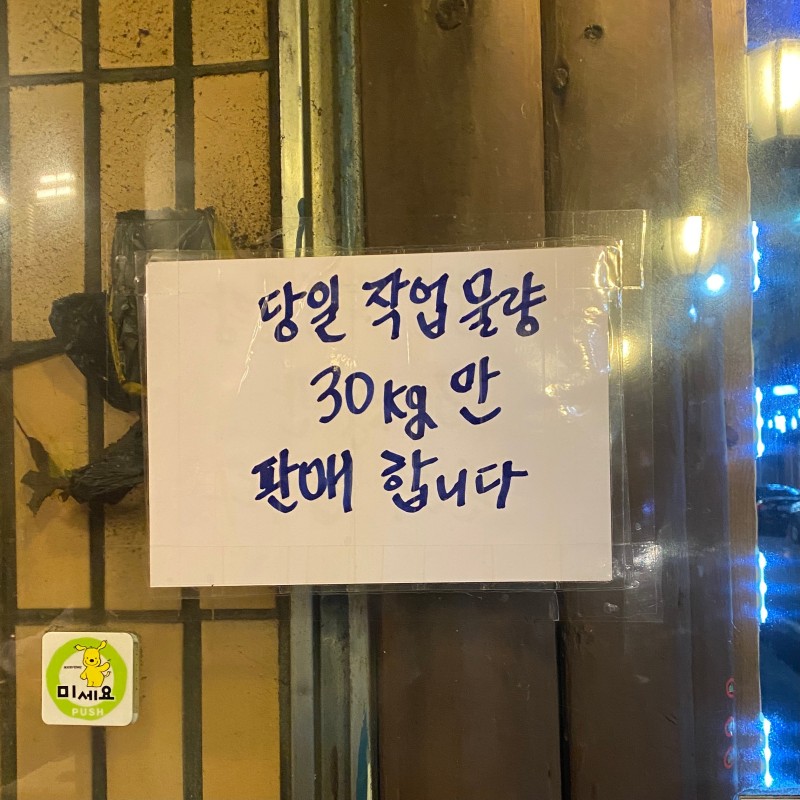 당일 작업 물량
30kg 만
판매 합니다
미세요
PUSH